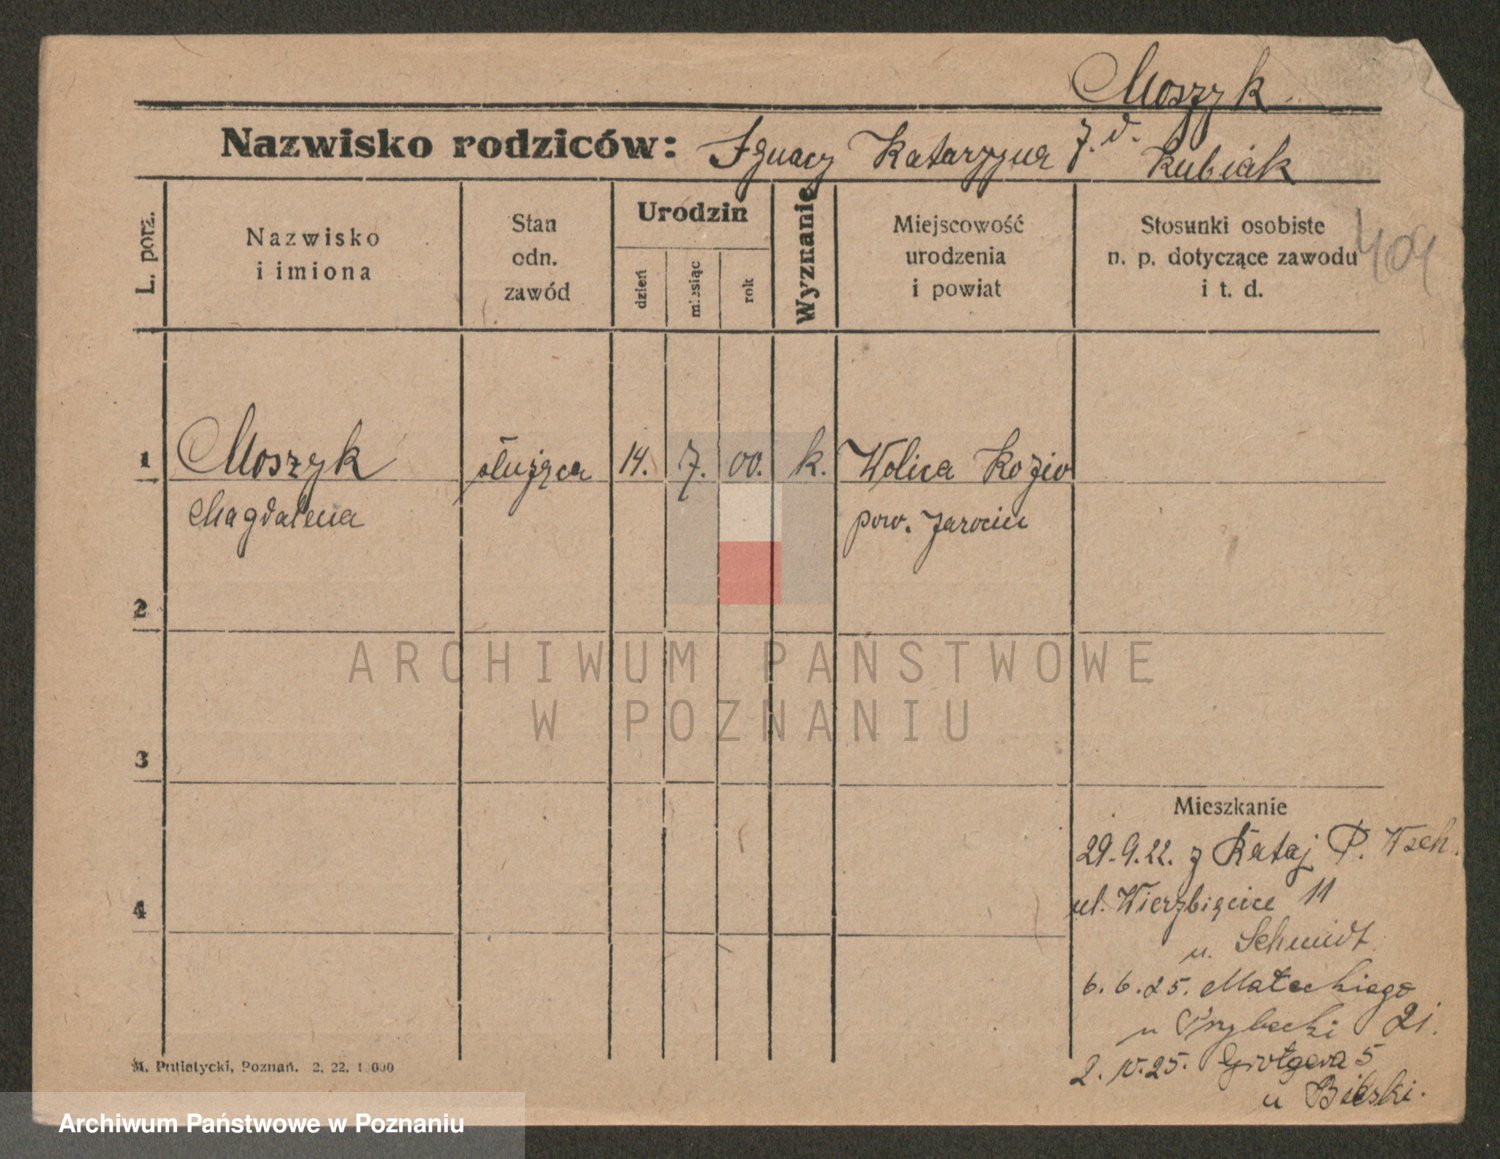 Moszyk
Nazwisko rodziców: Ignacy Katarzyna z. d. Kubiak
L. porz.
Nazwisko
i imiona
Stan
odn.
zawód
Urodzin
dzień
miesiąc
rok
Wyznanie
Miejscowość
urodzenia
i powiat
Stosunki osobiste
n. p. dotyczące zawodu
i t. d.
409
1 Moszyk służąca 14. 7. 00. k. Wolica Kozia
Magdalena pow. Jarocin
2
3
4
ARCHIWUM PAŃSTWOWE
W POZNANIU
Mieszkanie
29.9.22. z Rataj P. Wsch.
ul. Wierzbięcice 11
u. Schmidt
6.6.25. Małeckiego
u Przybecki 21.
2. 10.25. Grotgera 5
u Bilski.
M. Putiatycki, Poznań. 2. 22. 1.000
Archiwum Państwowe w Poznaniu